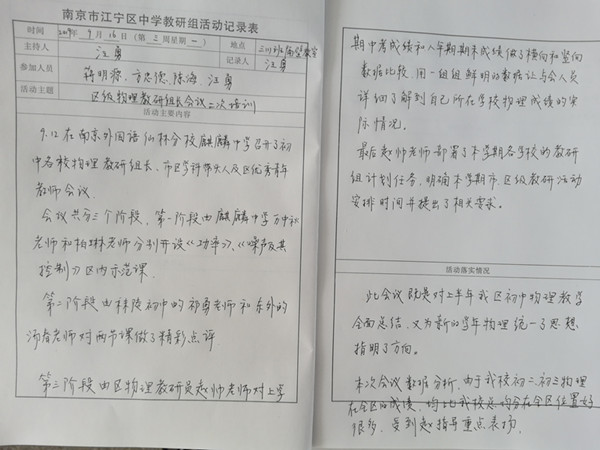 南京市江宁区中学教研组活动记录表
时间 2019年9月16日(第2周星期一) 地点
主持人 汪勇 记录人 汪勇
参加人员 蒋明 方忠德 陈海 汪勇
活动主题 区级物理教研组长会议二次培训
活动主要内容
9.12在南京外国语仙林分校麒麟中学召开了初
中各校物理教研组长、市区学科带头人及区优秀青年
教师会议.
会议共分三个阶段,第一阶段由麒麟中学
老师和柏琳老师分别开设《功率》、《噪声及其
控制》区内示范课.
第二阶段由林陵初中的祁勇老师和东外的
汤春老师对两节课做了精彩点评
第三阶段由区物理教研员赵帅老师对上学
期中考成绩和八年期期末成绩做了横向和竖向
数据比较.用一组组鲜明的数据让与会人员
详细了解到自己所在学校物理成绩的实
际情况。
最后赵帅老师部署了本学期各学校的教研
组计划任务,明确本学期市、区级教研活动
安排时间并提出了相关要求。
活动落实情况
此会议既是对上半年我区初中物理教学
全面总结,又为新的学年物理统一了思想
指明了方向。
本次会议数据分析,由于我校初二、初三物理
在全区的成绩,均比我校总均分在全区位置好
很多,受到赵指导重点表扬.